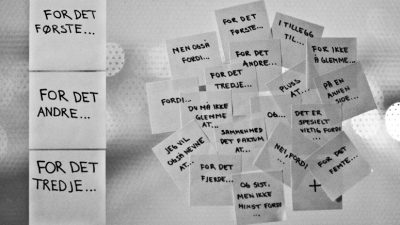 FOR DET
FØRSTE...
FOR DET
ANDRE...
FOR DET
TREDJE...
FOR DET
FØRSTE...
I TILLEGG
TIL...
MEN OGSÅ
FORDI...
FOR DET
ANDRE...
FOR IKKE
Å GLEMME...
FOR DET
TREDJE...
PLUSS
AT...
PÅ EN
ANNEN
SIDE...
FORDI...
DU MÅ IKKE
GLEMME
AT...
OG...
DET ER
SPESIELT
VIKTIG FORDI
JEG VIL
OGSÅ NEVNE
AT...
SAMMEN MED
DET FAKTUM
AT...
NEI, FORDI
...
FOR DET
FEMTE...
FOR DET
FJERDE...
OG SIST,
MEN IKKE
MINST FORDI
...
+